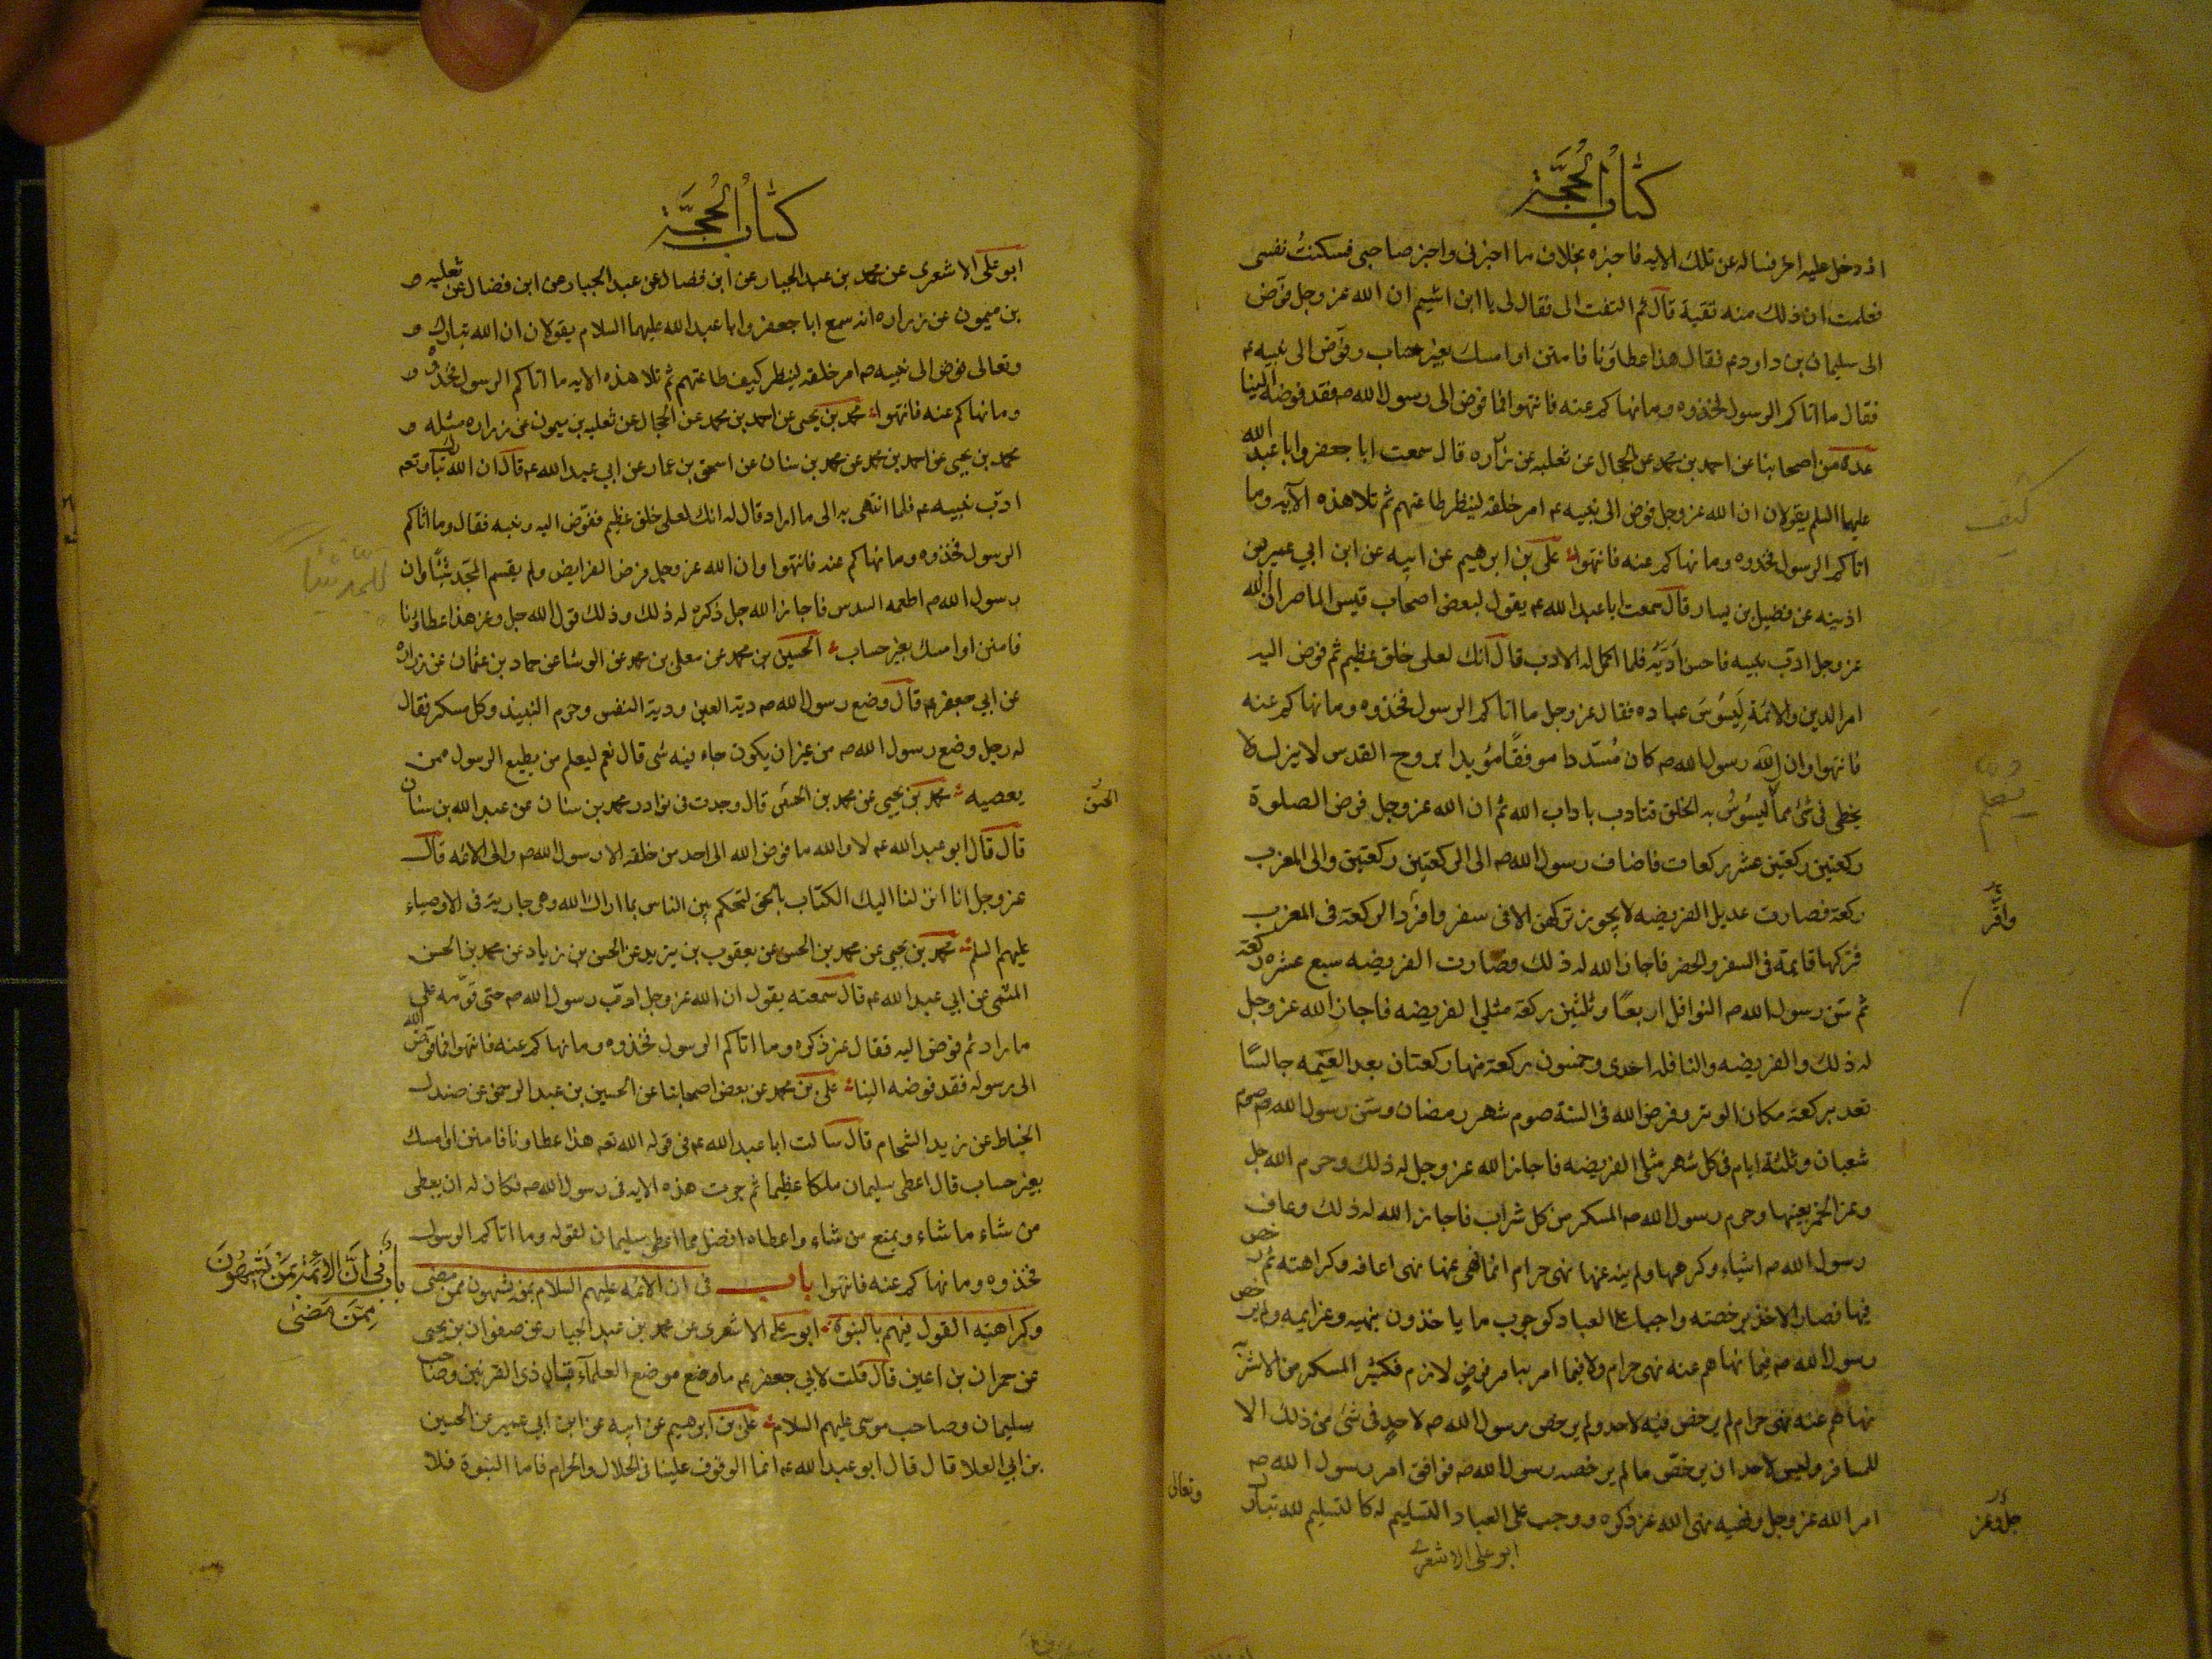 كتاب الحجة
اذ دخل عليه اخر فساله عن تلك الايه فاخبره بخلاف ما اخبرنى واخبر صاحبى فسكنت نفسى
فعلمت ان ذلك منه تقية قال ثم التفت الى فقال لى يا ابن اشيم ان الله عز وجل فوّض
الى سليمان بن داود ع فقال هذا عطاؤنا فامنن او امسك بغير حساب وفوّض الى نبيه ع
فقال ما اتاكم الرسول فخذوه وما نهاكم عنه فانتهوا فما فوض الى رسول الله ص فقد فوضه الينا
عدة من اصحابنا عن احمد بن محمد عن الحجال عن ثعلبه عن زراره قال سمعت ابا جعفر وابا عبد الله
عليهما السلم يقولان ان الله عز وجل فوض الى نبيه ع امر خلقه لينظر طاعتهم ثم تلا هذه الآيه وما
كيف
اتاكم الرسول فخذوه وما نهاكم عنه فانتهوا علی بن ابرهيم عن ابيه عن ابن ابي عمير عن
اذينه عن فضيل بن يسار قال سمعت ابا عبد الله ع يقول لبعض اصحاب قيس الماصر ان الله
عز وجل ادّب نبيه فاحسن ادبه فلما اكمل له الادب قال انك لعلى خلق عظيم ثم فوض اليه
امر الدين والامّة لِيَسُوسَ عباده فقال عز وجل ما اتاكم الرسول فخذوه وما نهاكم عنه
فانتهوا وان رسول الله ص كان مُسَدّدا موفقًا مؤيدا بروح القدس لا يزل ولا
يخطى فى شئ مما يَسُوسُ به الخلق فتادب باداب الله ثم ان الله عز وجل فرض الصلوة
ركعتين ركعتين عشر ركعات فاضاف رسول الله ص الى الركعتين ركعتين والى المغرب
ركعة فصارت عديل الفريضه لا يجوز تركهن الا فى سفر وافرد الركعة فى المغرب
فتركها قايمة فى السفر والحضر فاجاز الله له ذلك فصارت الفريضه سبع عشره ركعة
ثم سَنّ رسول الله ص النوافل اربعًا وثلثين ركعة مثلي الفريضه فاجاز الله عز وجل
له ذلك والفريضه والنافله احدى وخمسون ركعة منها ركعتان بعد العتمه جالسًا
تعد بركعة مكان الوتر وفرض الله فى السنة صوم شهر رمضان وسَنّ رسول الله ص صوم
شعبان وثلثة ايام فى كل شهر مثلى الفريضه فاجاز الله عز وجل له ذلك وحرم الله جل
وعز الخمر بعينها وحرم رسول الله ص المسكر من كل شراب فاجاز الله له ذلك وعاف
رسول الله ص اشياء وكرهها ولم ينه عنها نهى حرام انما نهى عنها نهى اعافه وكراهته ثم رخص
فيها فصار الاخذ برخصته واجبا على العباد كوجوب ما ياخذون بنهيه وعزايمه ولم يرخص
رسول الله ص فيما نهاهم عنه نهى حرام ولا فيما امر به امر فرض لازم فكثير المسكر من الاشر
نهاهم عنه نهى حرام لم يرخص فيه لاحد ولم يرخص رسول الله ص لاحدٍ فى شئ من ذلك الا
للمسافر وليس لاحد ان يرخّص ما لم يرخصه رسول الله ص فوافق امر رسول الله ص
امر الله عز وجل ونهيه نهى الله عز ذكره ووجب على العباد التسليم له كالتسليم لله تبارك
وتعالى
جل وعز
ابو على الاشعرى
كتاب الحجة
ابو على الاشعرى عن محمد بن عبد الجبار عن ابن فضال عن عبد الجبار عن ابن فضال عن ثعلبه
بن ميمون عن زراره انه سمع ابا جعفر وابا عبد الله عليهما السلام يقولان ان الله تبارك
وتعالى فوض الى نبيه ص امر خلقه لينظر كيف طاعتهم ثم تلا هذه الايه ما اتاكم الرسول فخذوه
وما نهاكم عنه فانتهوا محمد بن يحيى عن احمد بن محمد عن الحجال عن ثعلبه بن ميمون عن زراره مثله
محمد بن يحيى عن احمد بن محمد عن محمد بن سنان عن اسحق بن عمار عن ابي عبد الله ع قال ان الله تبارك وتع
ادّب نبيه ع فلما انتهى به الى ما اراد قال له انك لعلى خلق عظيم ففوّض اليه دينه فقال وما اتاكم
الرسول فخذوه وما نهاكم عنه فانتهوا وان الله عز وجل فرض الفرايض ولم يقسم للجد شيئًا وان
للجدّ شيئا
رسول الله ص اطعمه السدس فاجاز الله جل ذكره له ذلك وذلك قول الله جل وعز هذا عطاؤنا
فامنن او امسك بغير حساب الحسين بن محمد عن معلى بن محمد عن الوشا عن حماد بن عثمان عن زراره
عن ابي جعفر ع قال وضع رسول الله ص دية العين ودية النفس وحرم النبيذ وكل مسكر فقال
له رجل وضع رسول الله ص من غير ان يكون جاء فيه شى قال نعم ليعلم من يطيع الرسول ممن
يعصيه محمد بن يحيى عن محمد بن الحسن قال وجدت فى نوادر محمد بن سنان عن عبد الله بن سنان
الحسن
قال قال ابو عبد الله ع لا والله ما فوض الله الى احد من خلقه الا رسول الله ص والى الائمه قال
عز وجل انا انزلنا اليك الكتاب بالحق لتحكم بين الناس بما اراك الله وهى جارية فى الاوصياء
عليهم السلم محمد بن يحيى عن محمد بن الحسن عن يعقوب بن يزيد عن الحسن بن زياد عن محمد بن الحسن
الميثمى عن ابي عبد الله ع قال سمعته يقول ان الله عز وجل ادّب رسول الله ص حتى قوّمه على
ما اراد ثم فوض اليه فقال عز ذكره وما اتاكم الرسول فخذوه وما نهاكم عنه فانتهوا فما فوّض الله
الى رسوله فقد فوضه الينا على بن محمد عن بعض اصحابنا عن الحسين بن عبد الرحمن عن صندل
الخياط عن زيد الشحام قال سالت ابا عبد الله ع فى قوله الله تع هذا عطاونا فامنن او امسك
بغير حساب قال اعطى سليمان ملكا عظيما ثم جرت هذه الايه فى رسول الله ص فكان له ان يعطى
من شاء ما شاء ويمنع من شاء واعطاه افضل مما اعطى سليمان لقوله وما اتاكم الرسول
فخذوه وما نهاكم عنه فانتهوا باب فى ان الائمه عليهم السلام بمن يشبهون ممن مضى
باب فى أنّ الائمّة بمن يشبهون
ممّن مضى
وكراهية القول فيهم بالنبوة ابو على الاشعرى عن محمد بن عبد الجبار عن صفوان بن يحيى
عن حمران بن اعين قال قلت لابي جعفر ع ما موضع العلمآء قال ذى القرنين وصاحب
سليمان وصاحب موسى عليهم السلام على بن ابرهيم عن ابيه عن ابن ابي عمير عن الحسين
بن ابي العلا قال قال ابو عبد الله ع انما الوقوف علينا فى الحلال والحرام فاما النبوة فلا